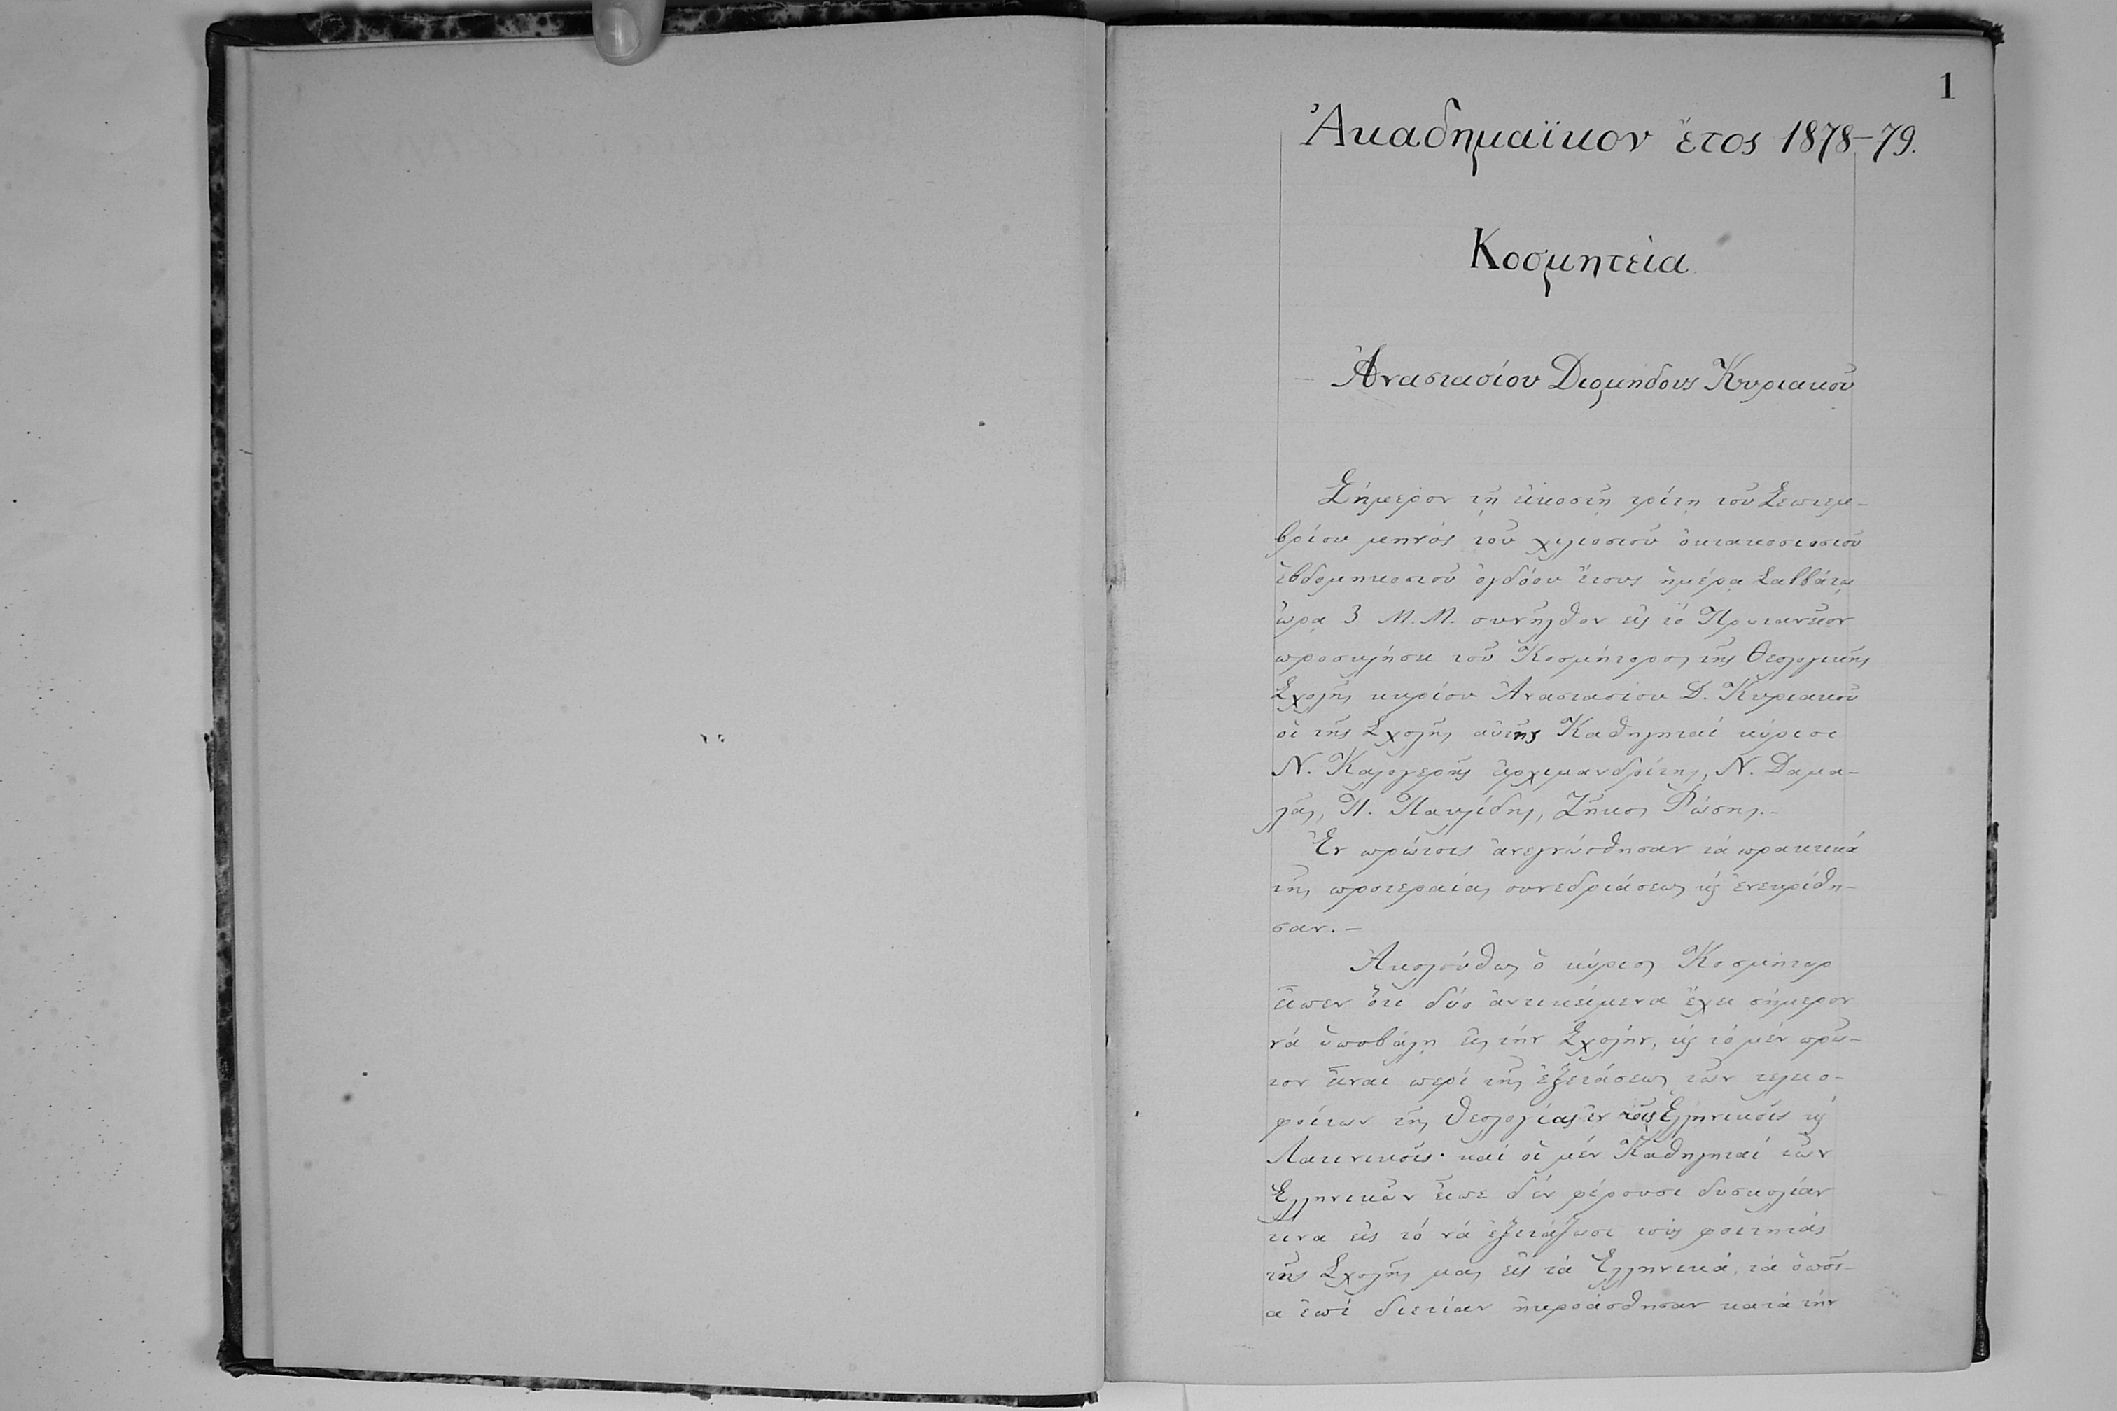 1
Ἀκαδημαϊκον ἔτος 1878-79.
Κοσμητεία
Ἀναστασίου Διομήδους Κυριακοῦ
Σήμερον τῇ εἰκοστῇ τρίτῃ τοῦ Σεπτεμ-
βρίου μηνός τοῦ χιλιοστοῦ ὀκτακοσιοστοῦ
ἑβδομηκοστοῦ ὀγδόου ἔτους ἡμέρᾳ Σαββάτῳ
ὥρᾳ 3 Μ.Μ. συνῆλθον εἰς τό Πρυτανεῖον
προσκλήσει τοῦ Κοσμήτορος τῆς Θεολογικῆς
Σχολῆς κυρίου Ἀναστασίου Δ. Κυριακοῦ
οἱ τῆς Σχολῆς αὐτῆς Καθηγηταί κύριοι
Ν. Καλογερᾶς ἀρχιμανδρίτης, Ν. Δαμα-
λᾶς, Π. Παυλίδης, Ζῆκος Ῥώσης.-
Ἐν πρώτοις ἀνεγνώσθησαν τά πρακτικά
τῆς προτεραίας συνεδριάσεως ϗ ἐνεκρίθη-
σαν.-
Ἀκολούθως ὁ κύριος Κοσμήτωρ
εἶπεν ὅτι δύο ἀντικείμενα ἔχει σήμερον
νά ὑποβάλῃ εἰς τήν Σχολήν, ϗ τό μέν πρῶ-
τον εἶναι περί τῆς ἐξετάσεως τῶν τελειο-
φοίτων τῆς Θεολογίας ἐν τοῖς Ἑλληνικοῖς ϗ
Λατινικοῖς· καί οἱ μέν Καθηγηταί τῶν
Ἑλληνικῶν εἶπε δέν φέρουσι δυσκολίαν
τινα εἰς τό νά ἐξετάζωσι τούς φοιτητάς
τῆς Σχολῆς μας εἰς τά Ἑλληνικά, τά ὁποῖ-
α ἐπί διετίαν ἠκροάσθησαν κατά τήν